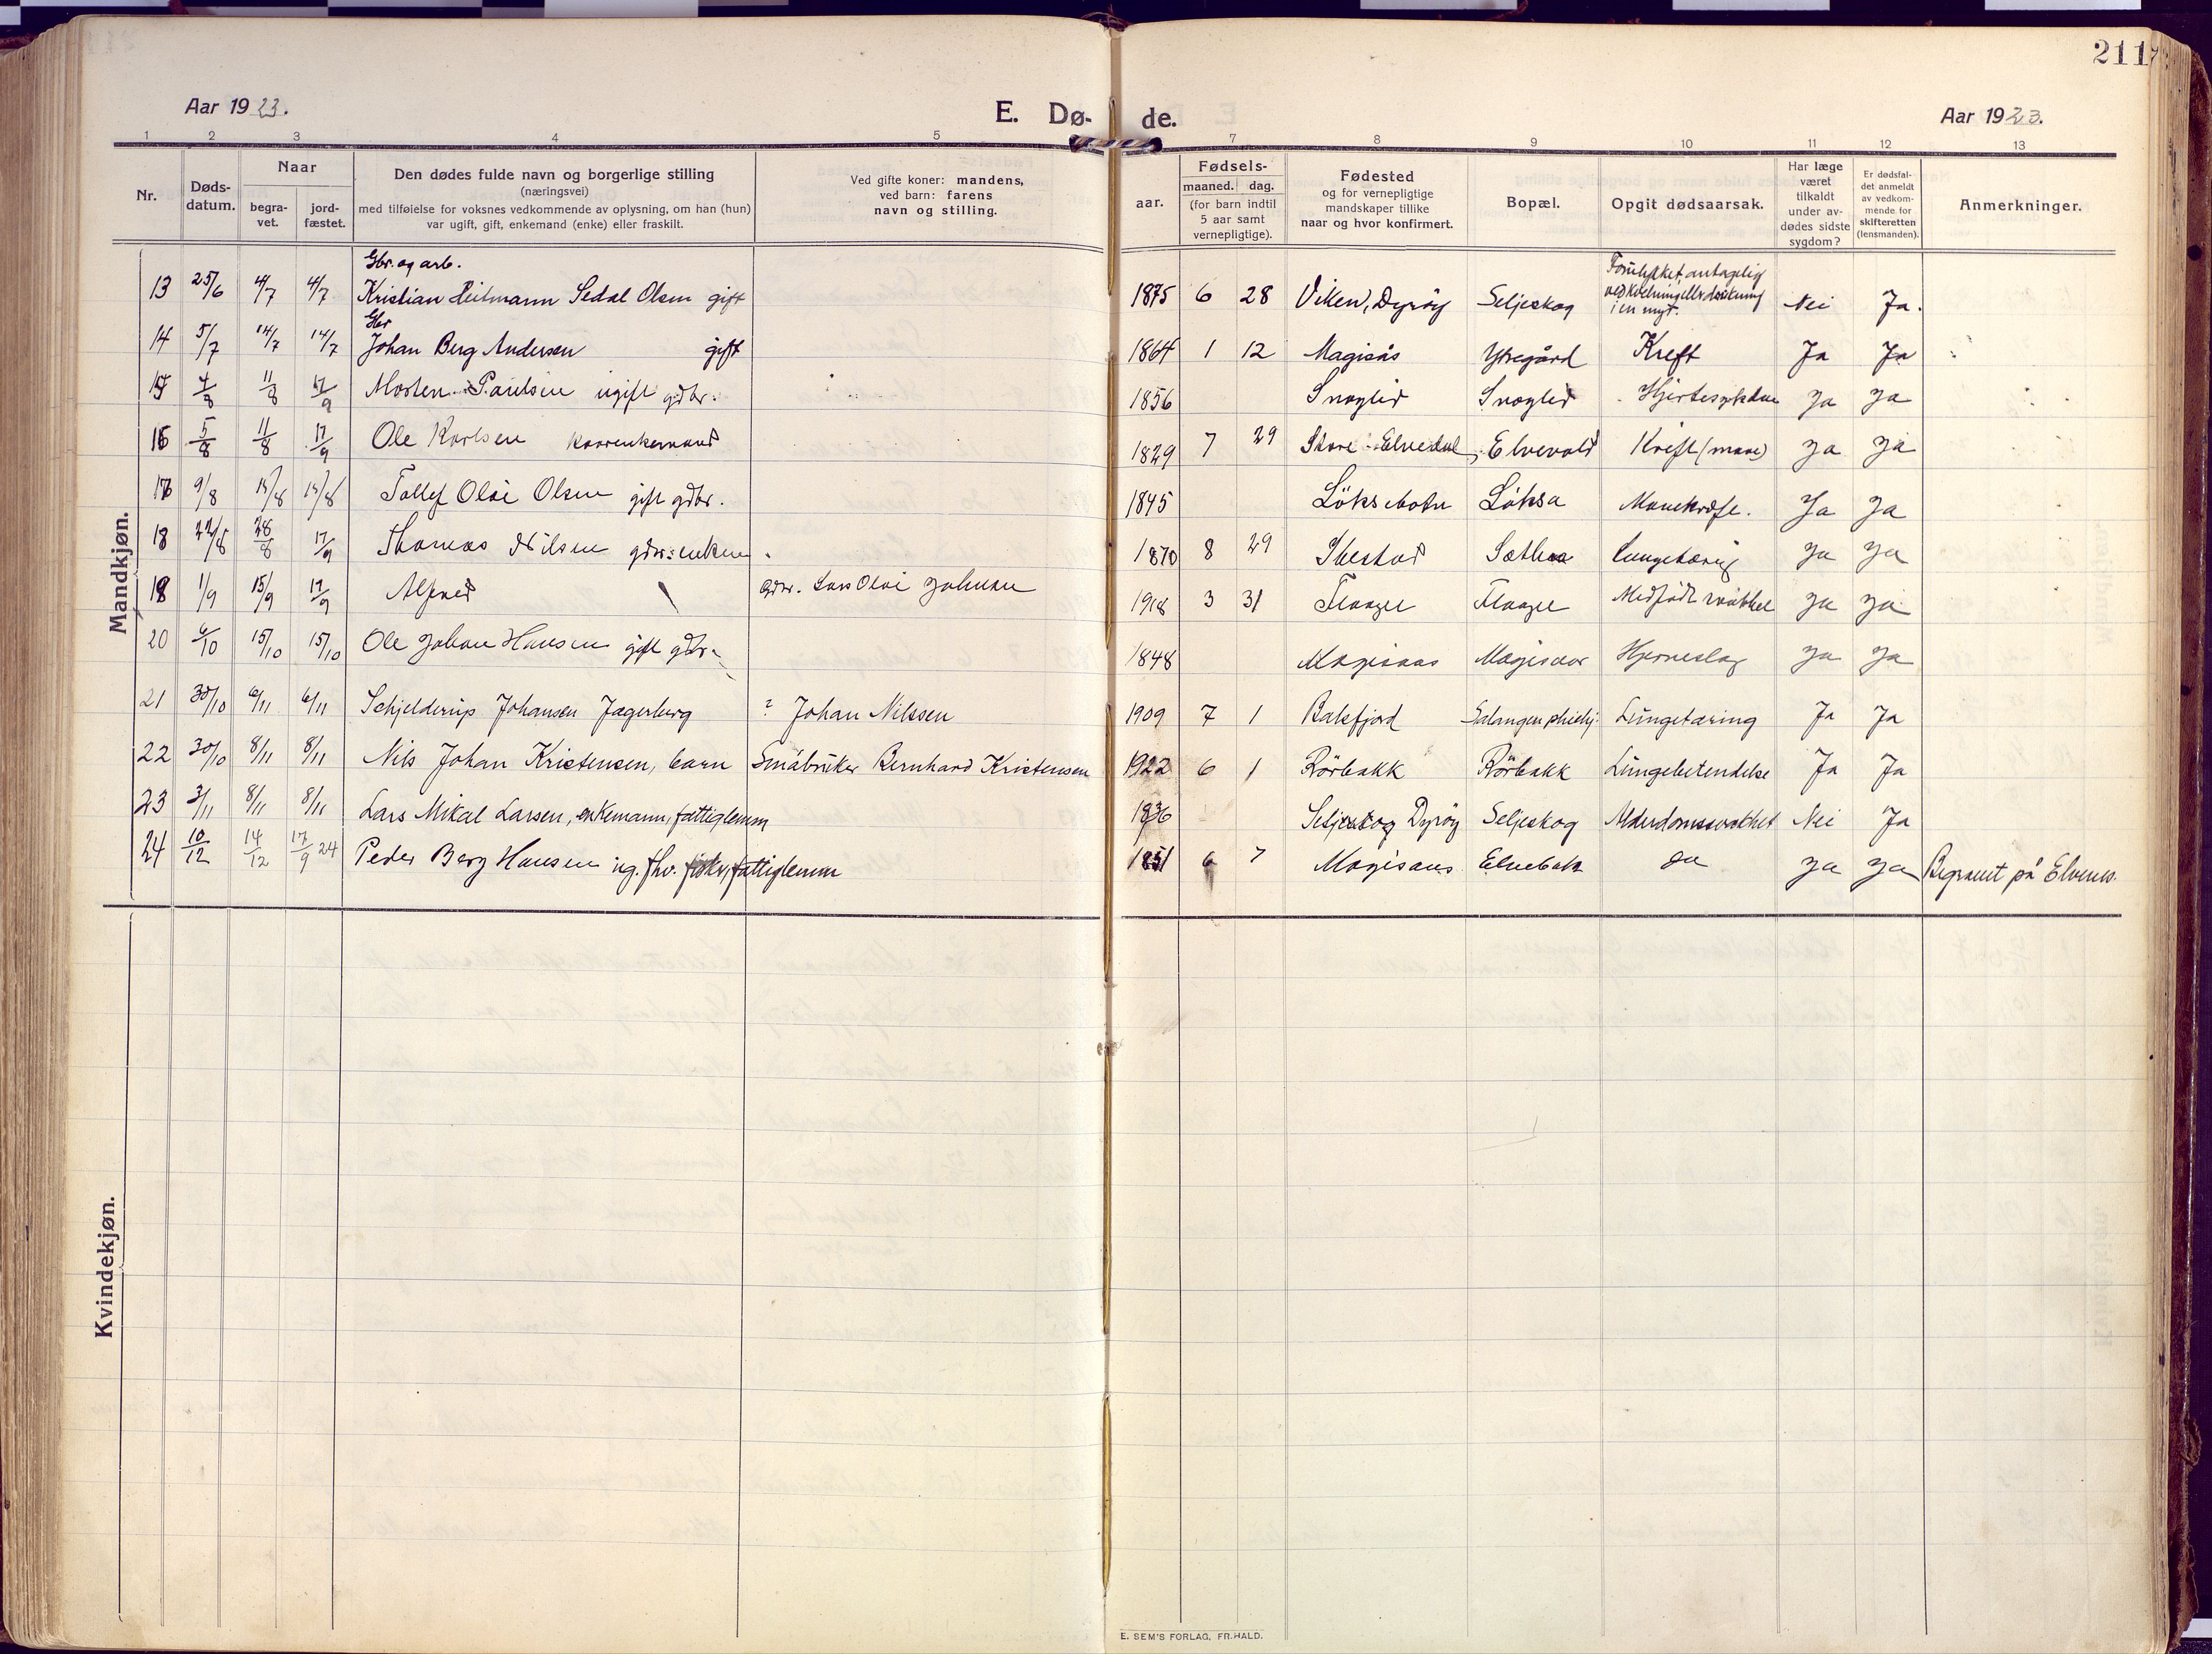 211
Aar 1923.
E. Dø-
de.
Aar 1923.
1 2 3 4 5 7 8 9 10 11 12 13
Nr.
Døds-
datum.
Naar
begra-
vet.
jord-
fæstet.
Den dødes fulde navn og borgerlige stilling
(næringsvei)
med tilføielse for voksnes vedkommende av oplysning, om han (hun)
var ugift, gift, enkemand (enke) eller fraskilt.
Ved gifte koner: mandens,
ved barn: farens
navn og stilling.
Fødsels-
aar.
maaned. dag.
(for barn indtil
5 aar samt
vernepligtige).
Fødested
og for vernepligtige
mandskaper tillike
naar og hvor konfirmert.
Bopæl.
Opgit dødsaarsak.
Har læge
været
tilkaldt
under av-
dødes sidste
sygdom?
Er dødsfal-
det anmeldt
av vedkom-
mende for
skifteretten
(lensmanden).
Anmerkninger.
Mandkjøn.
Gbr. og arb.
13 25/6 4/7 4/7 Kristian Heitmann Sedal Olsen gift 1875 6 28 Viken, Dyrøy Seljeskog Forulykket antagelig
i en myr. Nei Ja.
Gbr
14 5/7 14/7 14/7 Johan Berg Andersen gift 1864 1 12 Magisås Ytregård Kreft Ja Ja
15 4/8 11/8 17/9 Morten Paulsen ugift gdbr. 1856 Snoglid Snoglid Hjertesykdom Ja Ja
16 5/8 11/8 17/9 Ole Karlsen kaarenkemand 1829 7 29 Store-Elvedal Elvevold Kreft (mave) Ja Ja
17 9/8 15/8 15/8 Tollef Olai Olsen gift gdbr. 1845 Löksebotn Löksa Mavekræft. Ja Ja
18 22/8 28/8 17/9 Thomas Nilsen 1870 8 29 Ibestad Lungetæring Ja Ja
19 1/9 15/9 17/9 Alfred Gdbr. Lars Olai Johnsen 1918 3 31 Flaaget Flaaget Medfödt svakhet Ja Ja
20 6/10 15/10 15/10 Ole Johan Hansen gift gdbr. 1848 Magisaas Magisaas Hjerneslag Ja Ja
21 30/10 6/11 6/11 Schjelderup Johansen Jagerberg ? Johan Nilssen 1909 7 1 Balsfjord Lungetæring Ja Ja
22 30/10 8/11 8/11 Nils Johan Kristensen, barn Småbruker Bernhard Kristensen 1922 6 1 Rörbakk Rörbakk Lungebetendelse Ja Ja
23 3/11 8/11 8/11 Lars Mikal Larsen, enkemann, fattiglemm 1836 Seljeskog Dyröy Seljeskog Alderdomssvakhet Nei Ja
24 10/12 14/12 17/9 24 Peder Berg Hansen ug. fhv. fisker, fattiglemm 1851 6 7 Magisaas Elvebak do Ja Ja Begravet på Elvenes.
Kvindekjøn.
E. SEM'S FORLAG, FR.HALD.